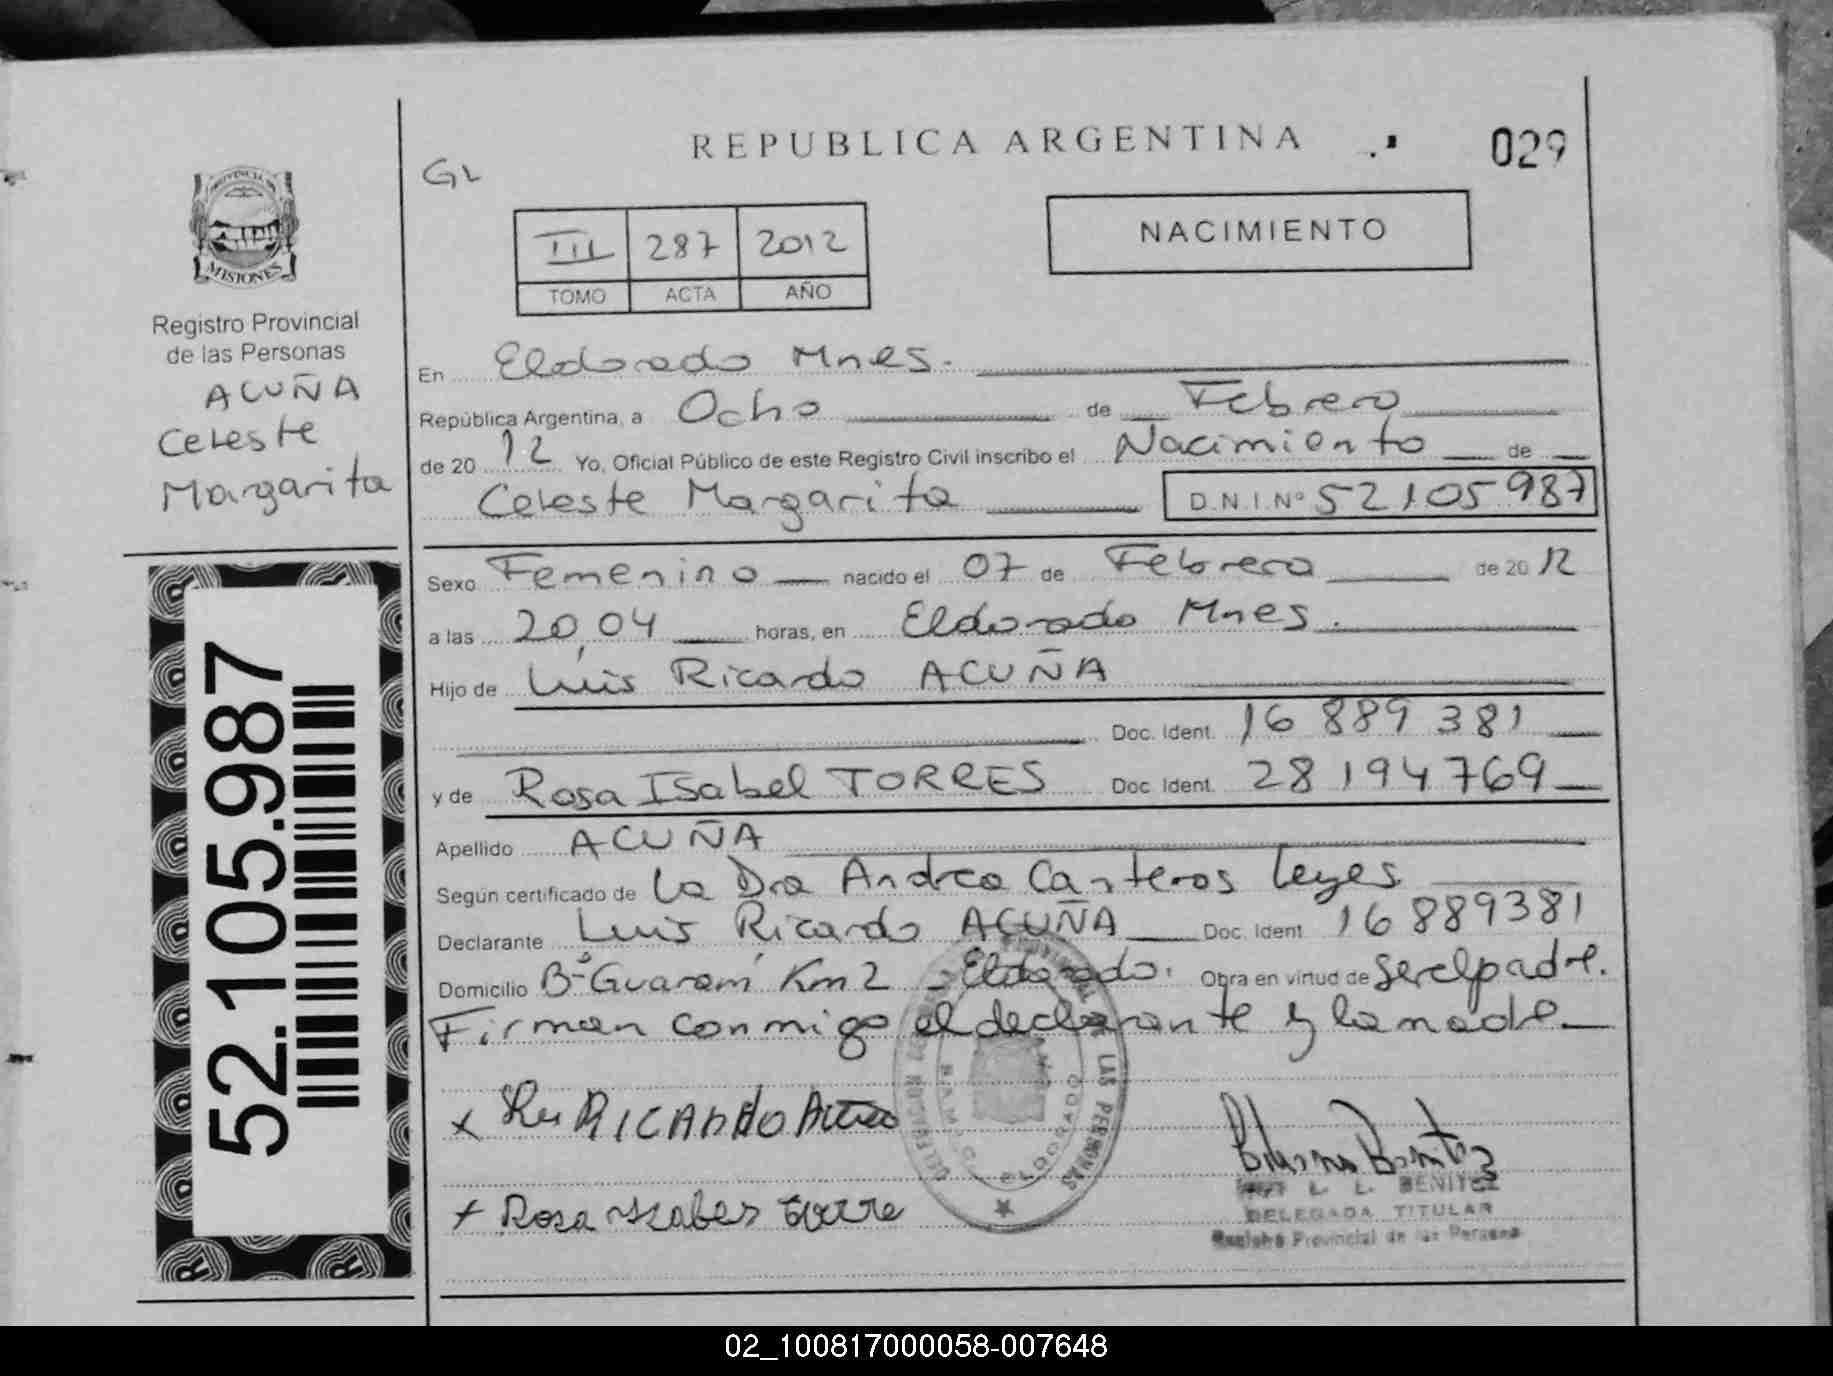 REPUBLICA ARGENTINA
029
GL
PROVINCIA DE
MISIONES
Registro Provincial
de las Personas
ACUÑA
Celeste
Margarita
52.105.987
III 287 2012
TOMO ACTA AÑO
NACIMIENTO
En Eldorado Mnes.
República Argentina, a Ocho de Febrero
de 20 12 Yo, Oficial Público de este Registro Civil inscribo el Nacimiento de
Celeste Margarita D.N.I.Nº 52105987
Sexo Femenino nacido el 07 de Febrero de 20 12
a las 20,04 horas, en Eldorado Mnes.
Hijo de Luis Ricardo ACUÑA
Doc. Ident. 16 889 381
y de Rosa Isabel TORRES Doc. Ident. 28 194769
Apellido ACUÑA
Según certificado de La Dra Andrea Canteros Leyes
Declarante Luis Ricardo ACUÑA Doc. Ident. 16889381
Domicilio Bº Guaraní Km 2 - Eldorado. Obra en virtud de ser el padre.
Firman conmigo el declarante y la madre
x RICARDO
+ Rosa
L. L. BENITEZ
DELEGADA TITULAR
Registro Provincial de las Personas
LAS PERSONAS
ELDORADO
02_100817000058-007648